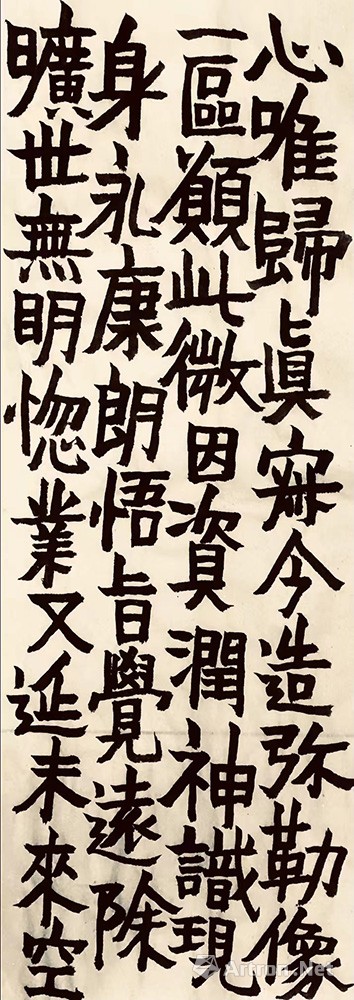 心唯歸眞寂今造弥勒像
一區願此微因資潤神識現
身永康朗悟旨覺遠除
曠世無明惚業又延未來空
Artron.Net